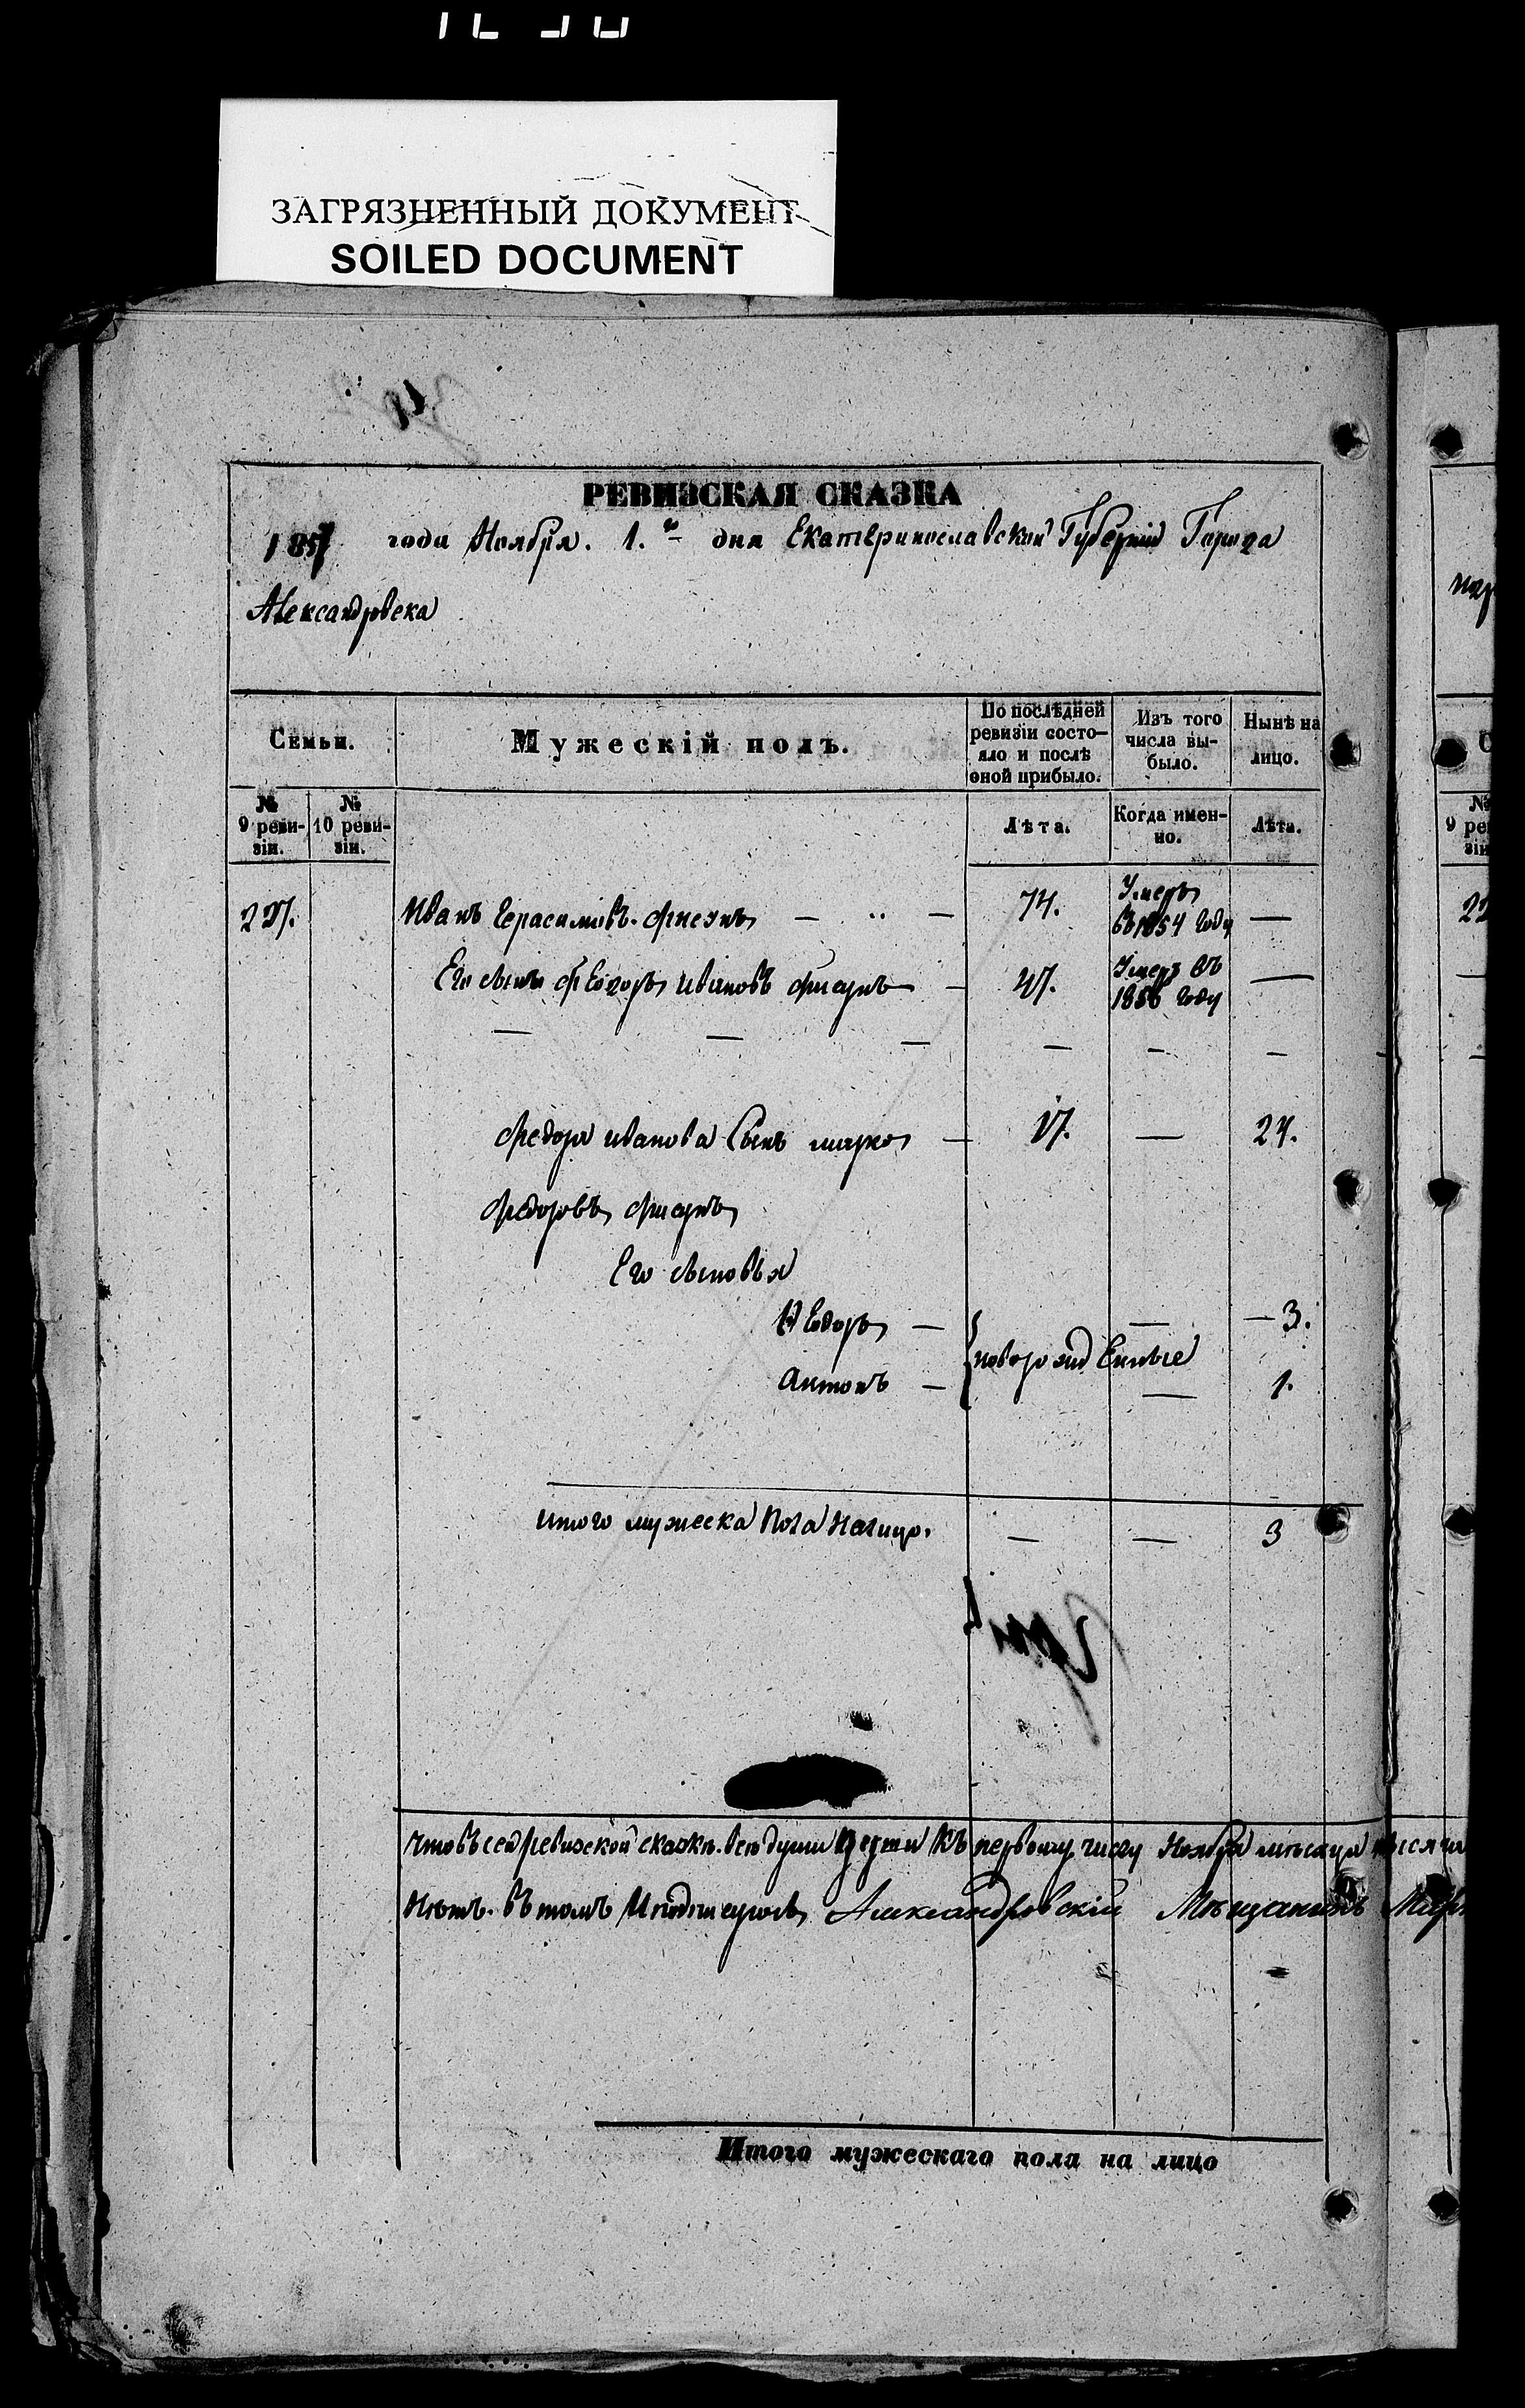 ЗАГРЯЗНЕННЫЙ ДОКУМЕНТ
SOILED DOCUMENT
РЕВИЗСКАЯ СКАЗКА
1857 года Ноября. 1.го дня Екатеринославской Губерніи Города
Александровска
Семьи.
Мужескій полъ.
По послѣдней ревизіи состо-
яло и послѣ
оной прибыло.
Изъ того
числа вы-
было.
Нынѣ на
лицо.
№
9 реви-
зіи.
№
10 реви-
зіи.
Лѣта.
Когда имен-
но.
Лѣта.
227. Иванъ Герасимовъ — — 74. Умеръ въ 1854 году —
Его сынъ Федоръ Ивановъ — 47. Умеръ въ 1856 году —
— — — — — —
Федора Иванова Сынъ Марко — 17. — 24.
Федоровъ
Его сыновья
Федоръ — — — 3.
новорожденные
Антонъ — — 1.
итого мужеска пола налицо. — — 3
что въ сей ревизской сказкѣ всѣ души къ первому числу Ноября мѣсяца тысяча
Нѣтъ. въ томъ и подписуюсь Александровскій Мѣщанинъ
Итого мужескаго пола на лицо
№
9 ре
зіи